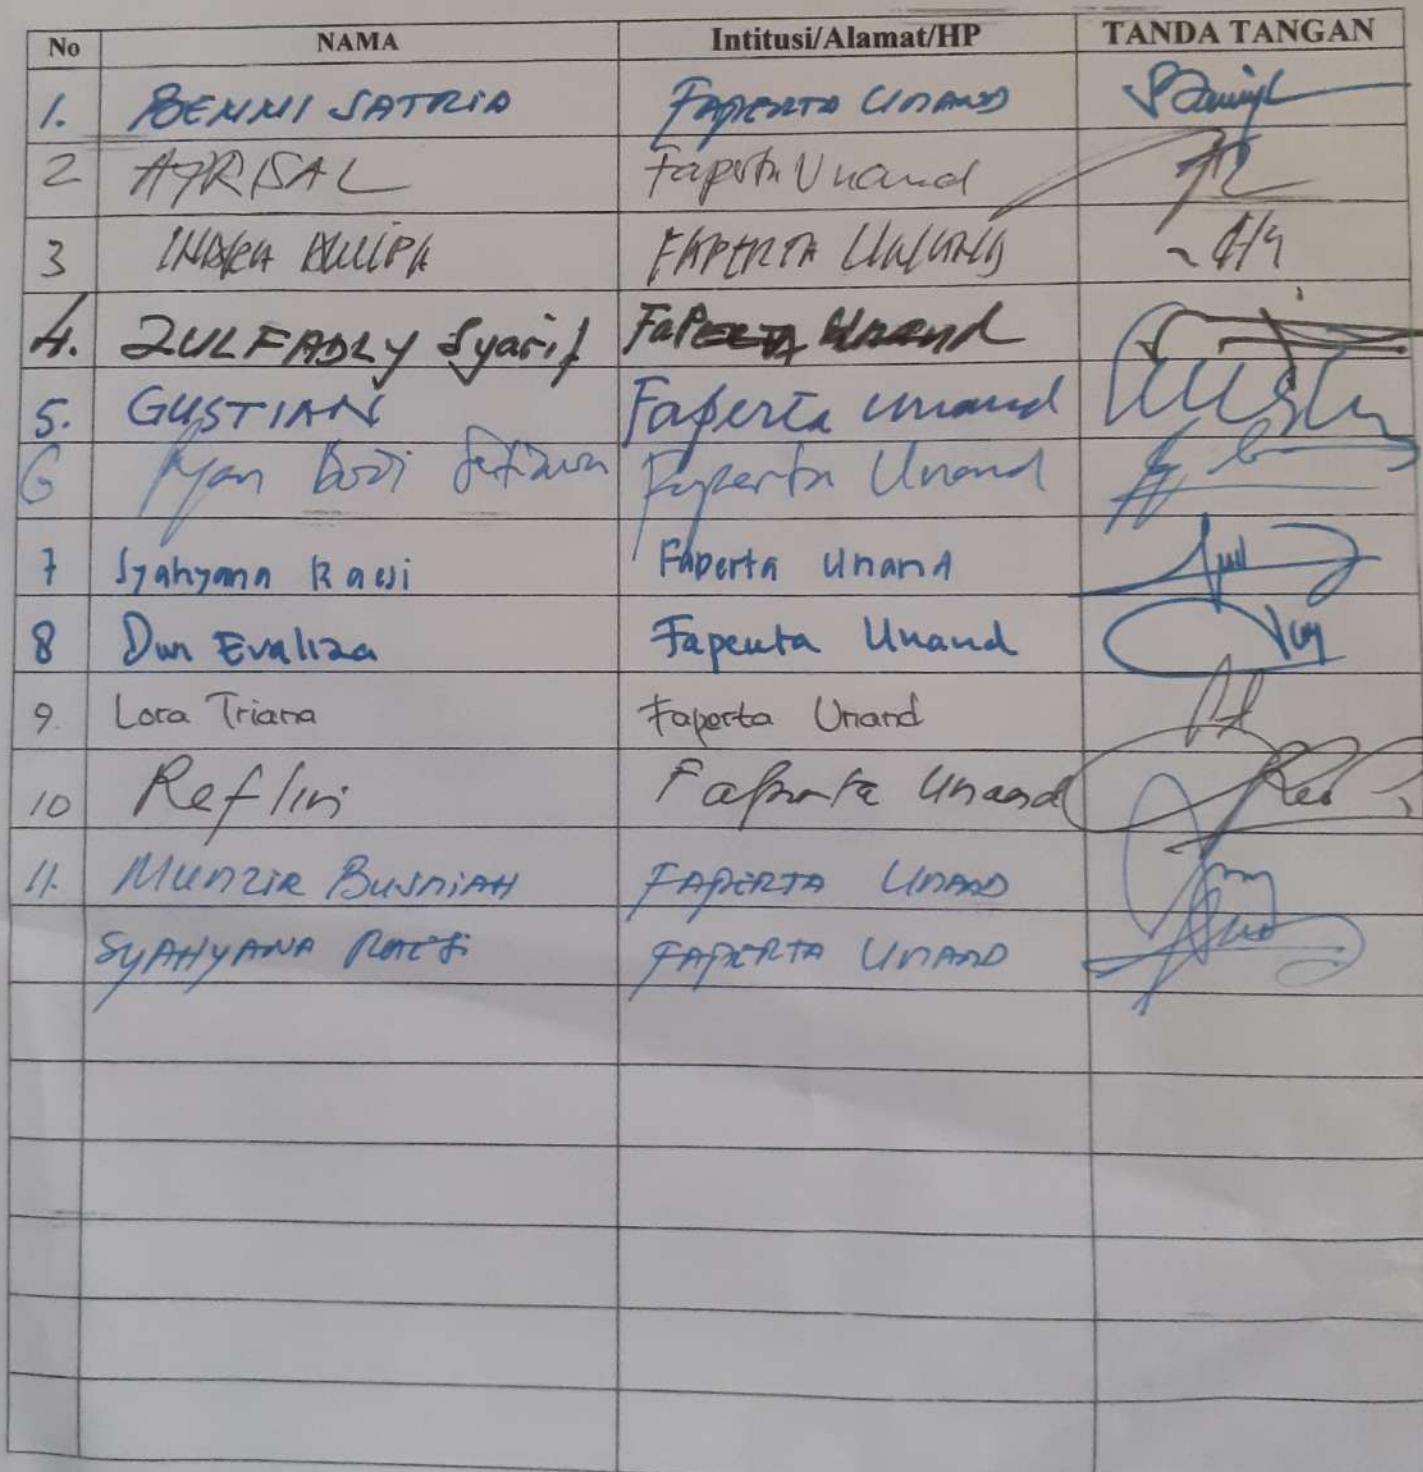 No NAMA Intitusi/Alamat/HP TANDA TANGAN
1. BENNI SATRIA FAPERTA UNAND
2 Faperta Unand
3 INDRA DWIPA FAPERTA UNAND
4. ZULFADLY Syarif FaPERTA Unand
5. GUSTIAN Faperta unand
6 Ryan Budi Setiawan Faperta Unand
7 Syahyana Raesi Faperta Unand
8 Dwi Evaliza Faperta Unand
9. Lora Triana Faperta Unand
10 Reflin Faperta Unand
11. MUNZIR BUSNIAH FAPERTA UNAND
SYAHYANA RAESI FAPERTA UNAND